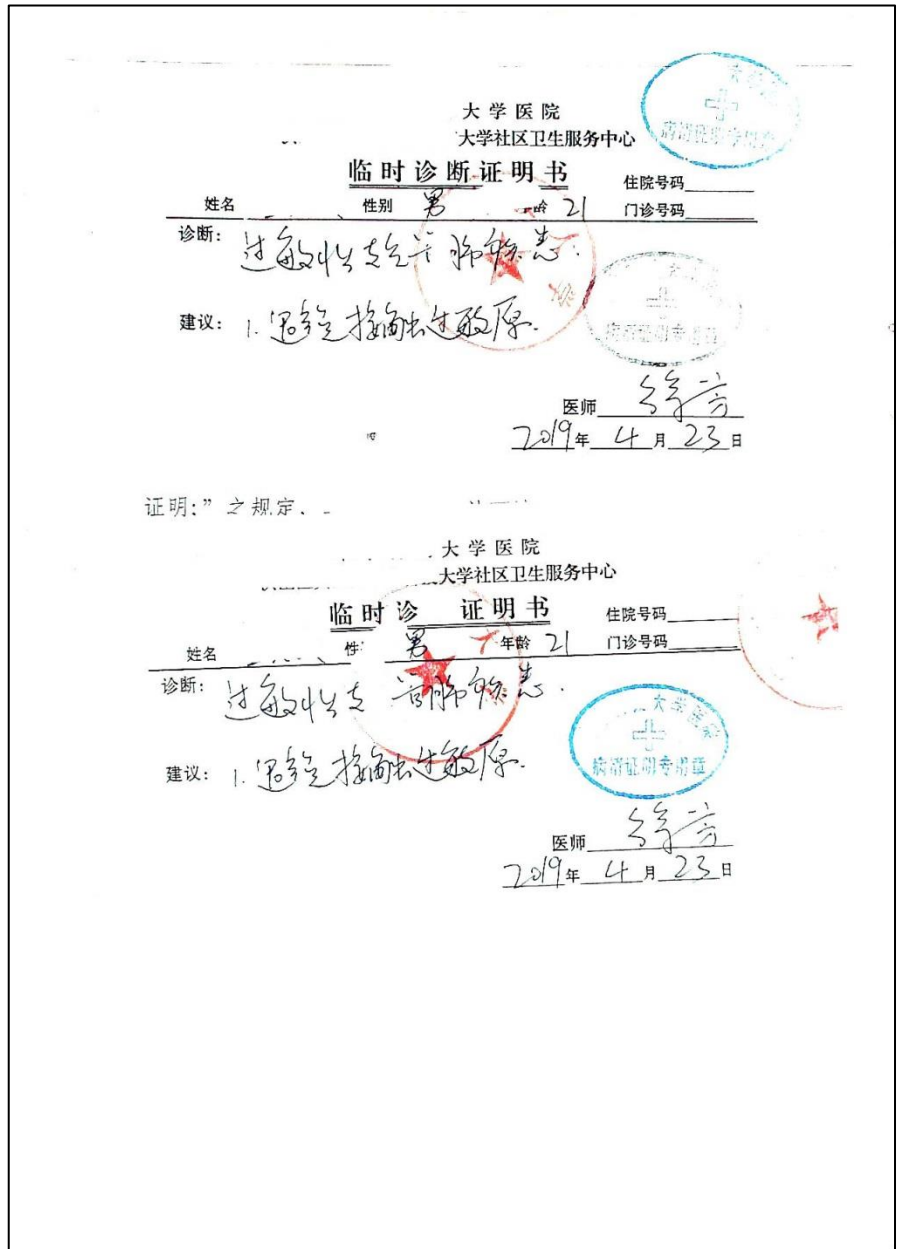 大学医院
大学社区卫生服务中心
病情证明专用章
临时诊断证明书
住院号码
姓名 性别 男 龄 21 门诊号码
诊断: 过敏性支气管肺
建议: 1. 避免接触过敏原.
病情证明专用章
医师
2019年 4月 23日
证明:” 之规定、
大学医院
大学社区卫生服务中心
临时诊 证明书
住院号码
姓名 性 男 年龄 21 门诊号码
诊断: 过敏性支 管肺
大学医院
病情证明专用章
建议: 1. 避免接触过敏原.
医师
2019年 4月 23日